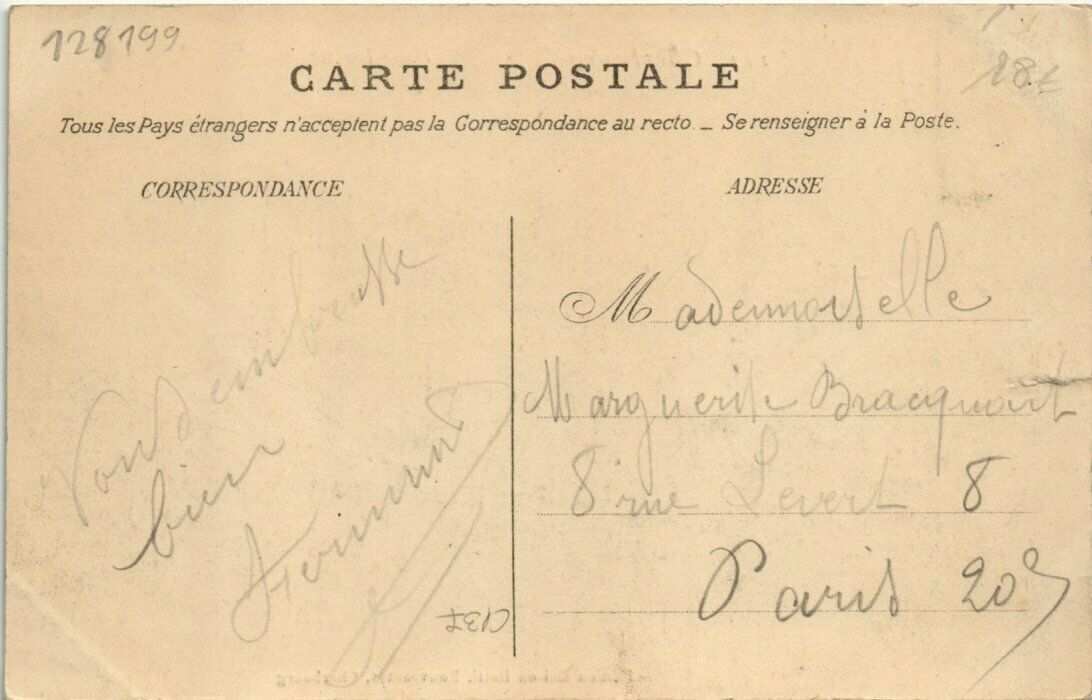 128199
18€
CARTE POSTALE
Tous les Pays étrangers n'acceptent pas la Correspondance au recto _ Se renseigner à la Poste.
CORRESPONDANCE
ADRESSE
Vous embrasse
bien
Mademoiselle
Marguerite Bracquart
8 rue Levert 8
Paris 20e